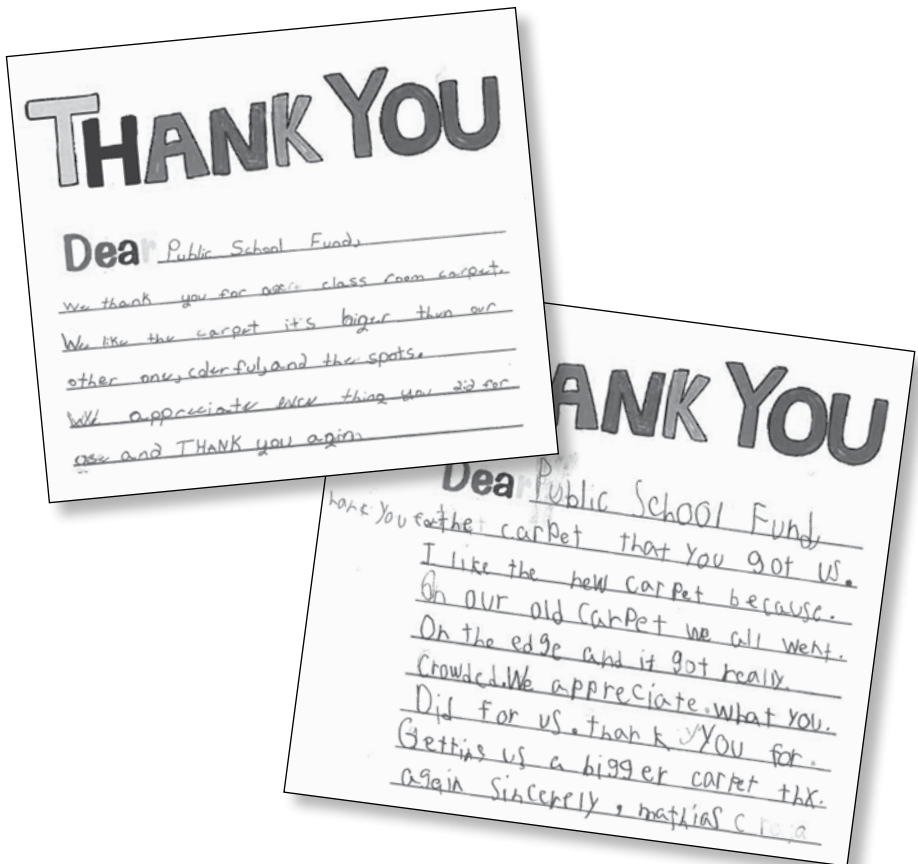 THANK YOU
Dear Public School Fund,
We thank you for class room carpet.
We like the carpet it's biger then our
other one, colerful, and the spots.
We appreciate thing you did for
and THANK you agin.
ANK YOU
Dear Public School Fund,
hank You for the carpet that You got us.
I like the new carpet because.
On our old carpet we all went.
On the edge and it got really.
Crowded. We appreciate. what you.
Did for us. thank YOU for.
Getting us a bigger carpet thx.
again Sincerely, mathias C